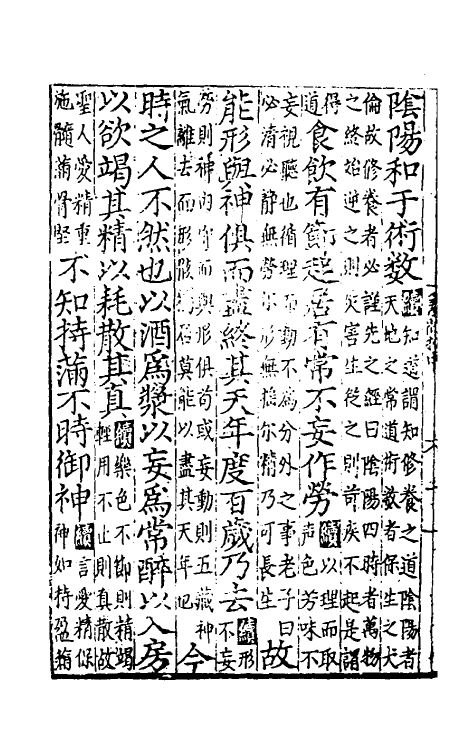 陰陽和于術數續知道謂知修養之道陰陽者
天地之常道術數者保生之大
倫故修養者必謹先之經曰陰陽四時者萬物
之終始逆之則灾害生從之則苛疾不起是謂
得
道食飲有節起居有常不妄作勞續以理而取
聲色芳味不
妄視聽也循理而動不爲分外之事老子曰
必清必静無勞尔形無摇尔精乃可長生故
能形與神俱而盡終其天年度百歲乃去續形
不妄
勞則神内守而與形俱苟或妄動則五藏神
氣離去而形骸獨居莫能以盡其天年也今
時之人不然也以酒爲漿以妄爲常醉以入房
以欲竭其精以耗散其真續樂色不節則精竭
輕用不止則真散故
聖人愛精重
施髓滿骨堅不知持滿不時御神續言愛精保
神如持盈